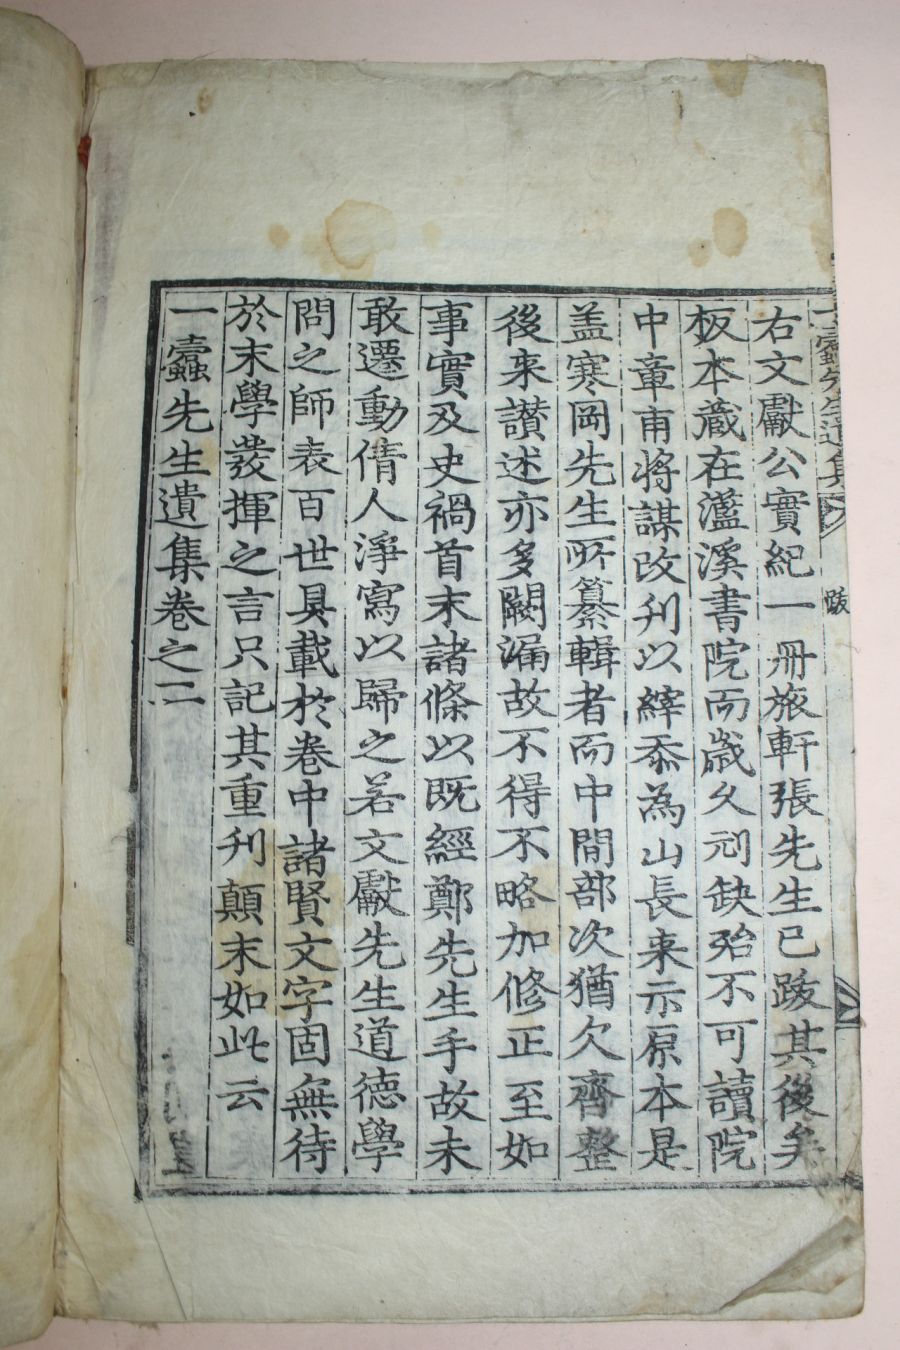 一蠹先生遺集
跋
右文獻公實紀一冊旅軒張先生已跋其後矣
板本蔵在灆溪書院而歲久刓缺殆不可讀院
中章甫將謀改刊以繹忝為山長来示原本是
盖寒岡先生所纂輯者而中間部次猶欠齊整
後来讃述亦多闕漏故不得不略加修正至如
事實及史禍首末諸條以既經鄭先生手故未
敢遷動倩人淨寫以歸之若文獻先生道德學
問之師表百世具載於卷中諸賢文字固無待
於末學發揮之言只記其重刊顛末如此云
一蠹先生遺集卷之二